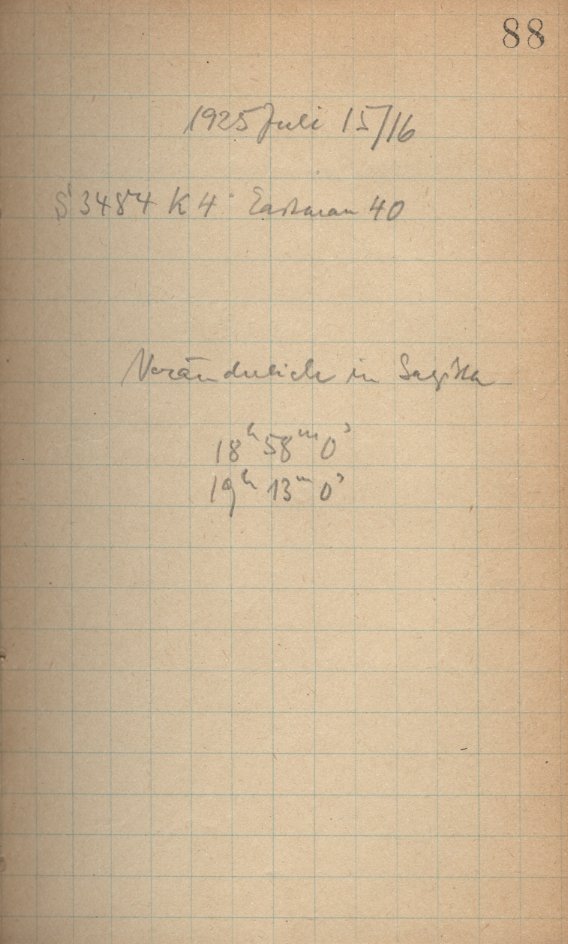 88
1925 Juli 15/16
S 3484 K 4 Eastman 40
Veränderliche in Sagitta
18h 58m 0s
19h 13m 0s